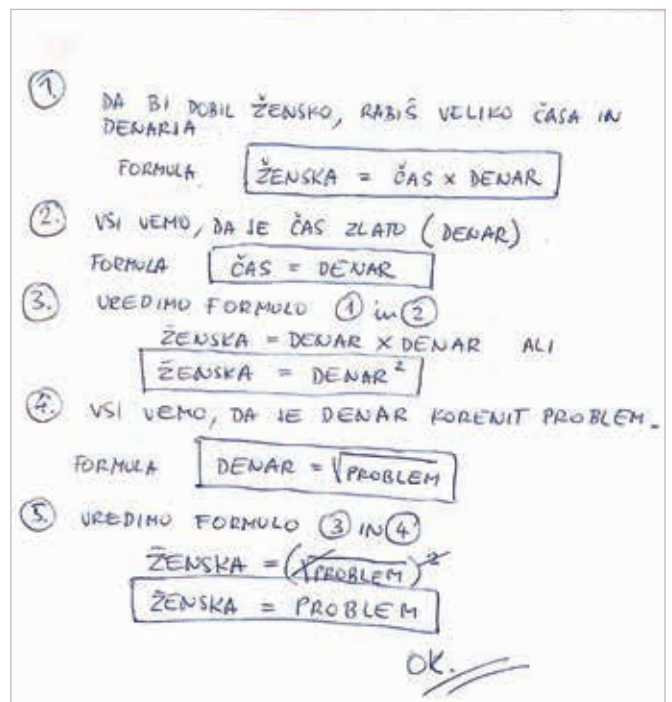 1. DA BI DOBIL ŽENSKO, RABIŠ VELIKO ČASA IN
DENARJA
FORMULA ŽENSKA = ČAS x DENAR
2. VSI VEMO, DA JE ČAS ZLATO (DENAR)
FORMULA ČAS = DENAR
3. UREDIMO FORMULO 1 in 2
ŽENSKA = DENAR X DENAR ALI
ŽENSKA = DENAR²
4. VSI VEMO, DA JE DENAR KORENIT PROBLEM.
FORMULA DENAR = √PROBLEM
5. UREDIMO FORMULO 3 IN 4
ŽENSKA = (√PROBLEM)²
ŽENSKA = PROBLEM
OK.